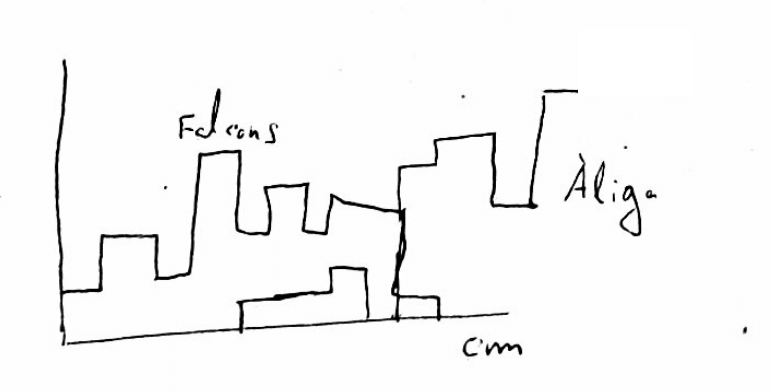 Falcons
Àliga
cm